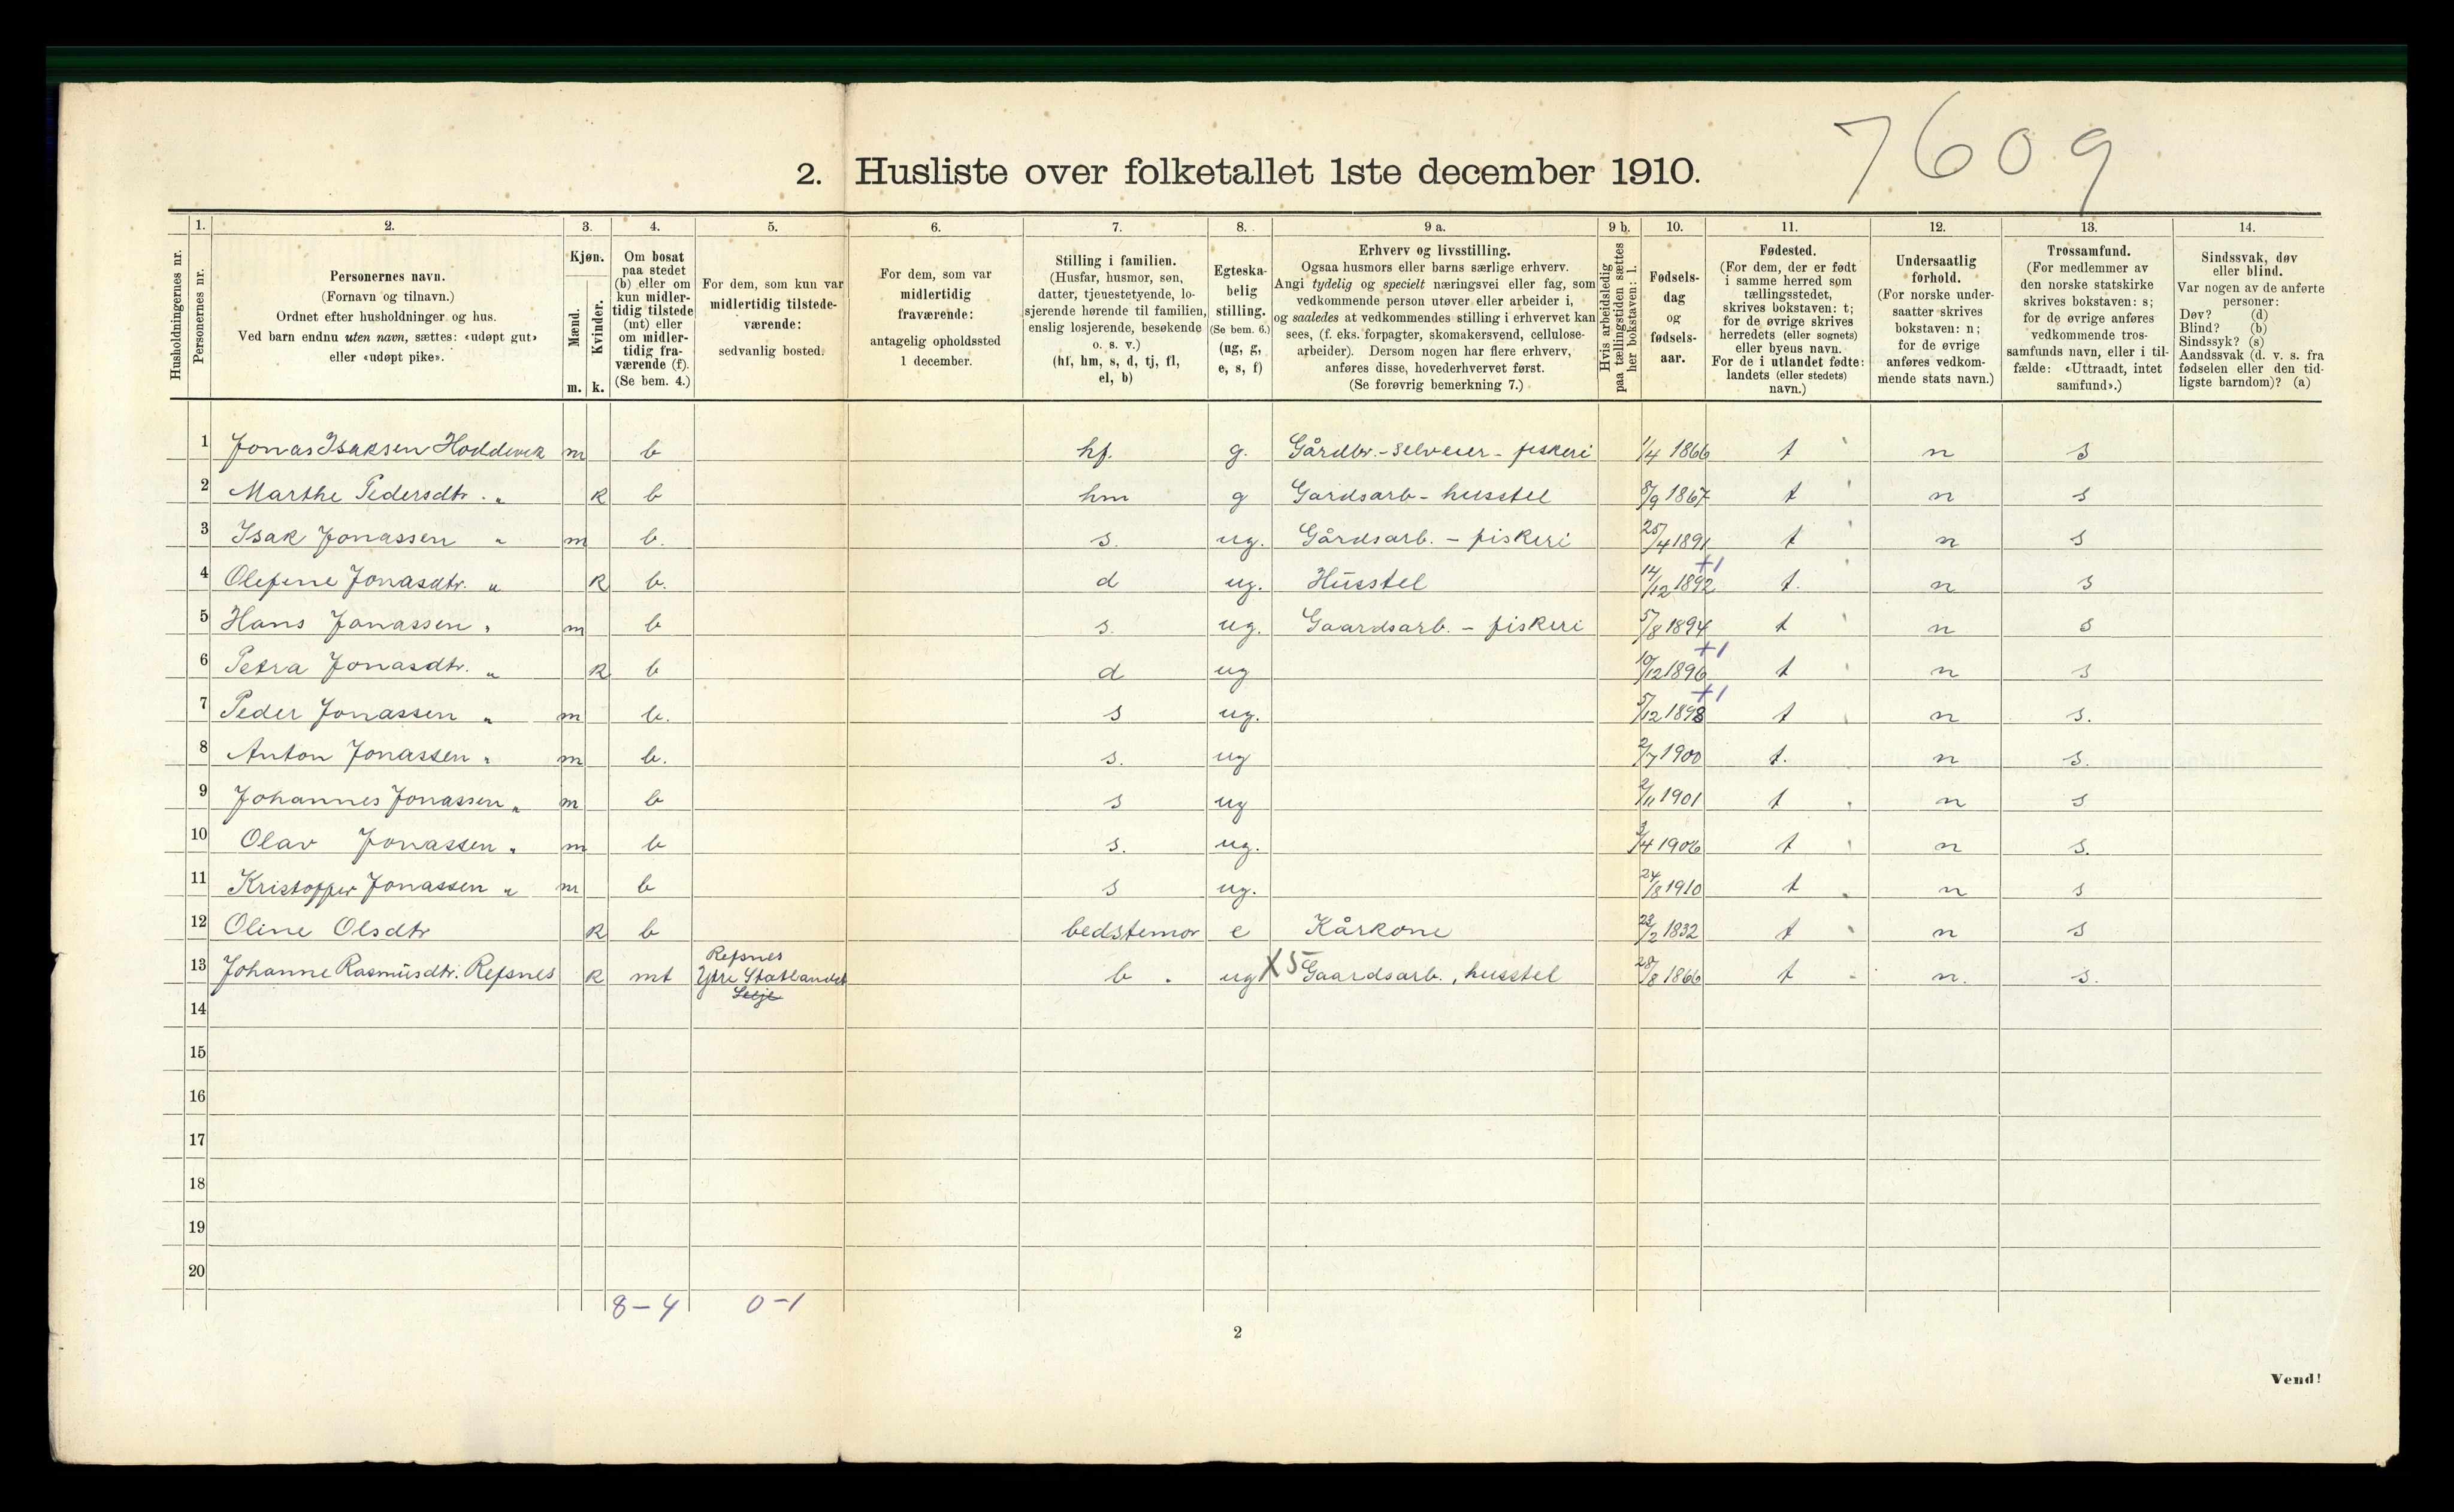 7609
2. Husliste over folketallet 1ste december 1910.
1. 2. 3. 4. 5. 6. 7. 8. 9 a. 9 b. 10. 11. 12. 13. 14.
Husholdningernes nr.
Personernes nr.
Personernes navn.
(Fornavn og tilnavn.)
Ordnet efter husholdninger og hus.
Ved barn endnu uten navn, sættes: «udøpt gut»
eller «udøpt pike».
Kjøn.
Mænd.
m.
Kvinder.
k.
Om bosat
paa stedet
(b) eller om
kun midler-
tidig tilstede
(mt) eller
om midler-
tidig fra-
værende (f).
(Se bem. 4.)
For dem, som kun var
midlertidig tilstede-
værende:
sedvanlig bosted.
For dem, som var
midlertidig
fraværende:
antagelig opholdssted
1 december.
Stilling i familien.
(Husfar, husmor, søn,
datter, tjenestetyende, lo-
sjerende hørende til familien,
enslig losjerende, besøkende
o. s. v.)
(hf, hm, s, d, tj, fl,
el, b)
Egteska-
belig
stilling.
(Se bem. 6.)
(ug, g,
e, s, f)
Erhverv og livsstilling.
Ogsaa husmors eller barns særlige erhverv.
Angi tydelig og specielt næringsvei eller fag, som
vedkommende person utøver eller arbeider i,
og saaledes at vedkommendes stilling i erhvervet kan
sees, (f. eks. forpagter, skomakersvend, cellulose-
arbeider). Dersom nogen har flere erhverv,
anføres disse, hovederhvervet først.
(Se forøvrig bemerkning 7.)
Hvis arbeidsledig
paa tællingstiden sættes
her bokstaven: l.
Fødsels-
dag
og
fødsels-
aar.
Fødested.
(For dem, der er født
i samme herred som
tællingsstedet,
skrives bokstaven: t;
for de øvrige skrives
herredets (eller sognets)
eller byens navn.
For de i utlandet fødte:
landets (eller stedets)
navn.)
Undersaatlig
forhold.
(For norske under-
saatter skrives
bokstaven: n;
for de øvrige
anføres vedkom-
mende stats navn.)
Trossamfund.
(For medlemmer av
den norske statskirke
skrives bokstaven: s;
for de øvrige anføres
vedkommende tros-
samfunds navn, eller i til-
fælde: «Uttraadt, intet
samfund».)
Sindssvak, døv
eller blind.
Var nogen av de anførte
personer:
Døv? (d)
Blind? (b)
Sindssyk? (s)
Aandssvak (d. v. s. fra
fødselen eller den tid-
ligste barndom)? (a)
1 Jonas Isaksen Hoddevik m b hf. g. Gårdbr.-selveier-fiskeri 1/4 1866 t n s
2 Marthe Pedersdtr. „ k b hm g Gardsarb-husstel 8/9 1867 t n s
3 Isak Jonassen „ m b. s. ug. Gårdsarb. - fiskeri 25/4 1891 t n s
4 Olefine Jonasdtr. „ k b. d ug. Husstel 14/12 1892 +1 t. n s
5 Hans Jonassen „ m b s. ug. Gaardsarb. - fiskeri 5/8 1894 t n s
6 Petra Jonasdtr. „ k b d ug 10/12 1896 +1 t n s
7 Peder Jonassen „ m b. s ug. 5/12 1898 +1 t n s.
8 Anton Jonassen „ m b. s. ug 2/7 1900 t. n s.
9 Johannes Jonassen „ m b s ug 2/11 1901 t n s
10 Olav Jonassen „ m b s. ug. 3/4 1906 t n s.
11 Kristoffer Jonassen „ m b s ug. 24/8 1910 t n s
12 Oline Olsdtr k b bedstemor e Kårkone 23/2 1832 t n s
Refsnes
13 Johanne Rasmusdtr. Refsnes k mt Ytre Statlandet b. ug X5 Gaardsarb., husstel 28/8 1866 t n. s.
Selje
14
15
16
17
18
19
20
8-4 0-1
2
Vend!